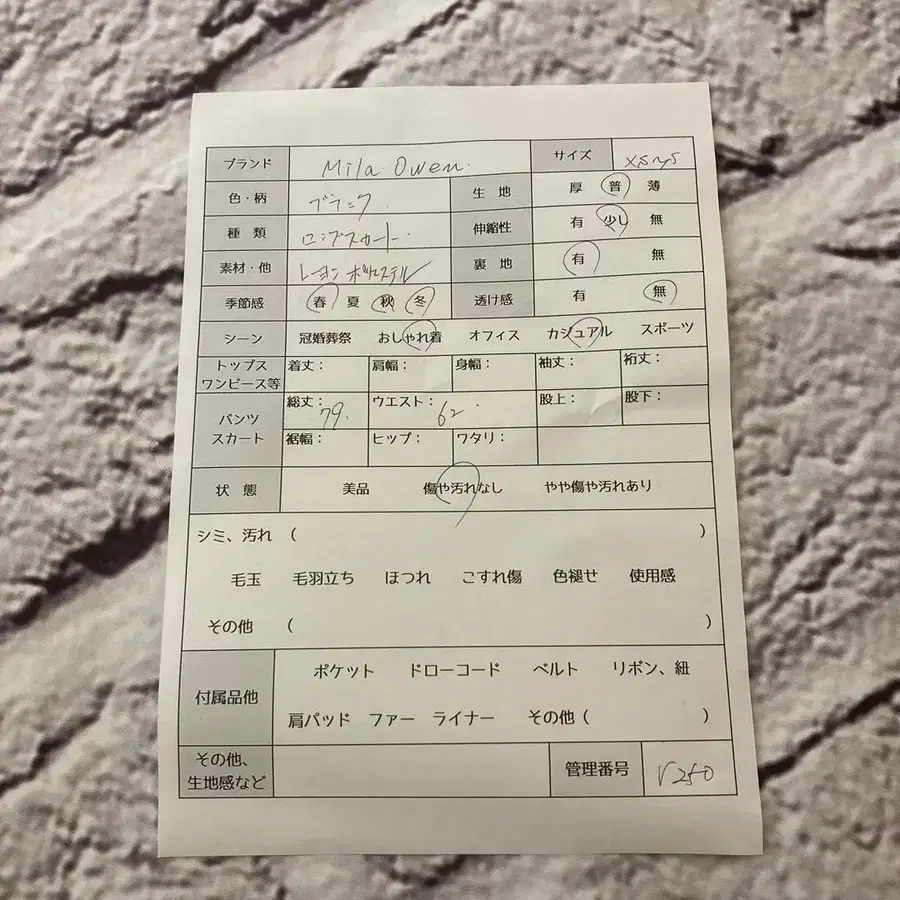 ブランド Mila Owen. サイズ
色・柄 ブラック. 生地 厚 普 薄
種類 ロングスカート. 伸縮性 有 少し 無
素材・他 レーヨン ポリエステル 裏地 有 無
季節感 春 夏 秋 冬 透け感 有 無
シーン 冠婚葬祭 おしゃれ着 オフィス カジュアル スポーツ
トップス
ワンピース等 着丈: 肩幅: 身幅: 袖丈: 裄丈:
パンツ
スカート 総丈: 79. ウエスト: 62. 股上: 股下:
裾幅: ヒップ: ワタリ:
状態 美品 傷や汚れなし やや傷や汚れあり
シミ、汚れ ( )
毛玉 毛羽立ち ほつれ こすれ傷 色褪せ 使用感
その他 ( )
付属品他 ポケット ドローコード ベルト リボン、紐
肩パッド ファー ライナー その他 ( )
その他、
生地感など 管理番号 V250